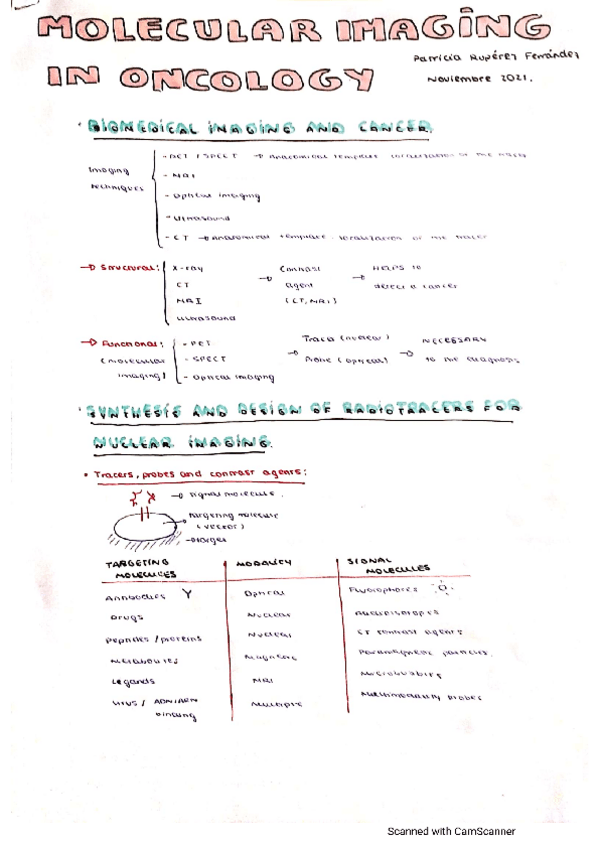 MOLECULAR IMAGING
IN ONCOLOGY
Patricia Rupérez Fernández
Noviembre 2021.
· BIOMEDICAL IMAGING AND CANCER.
Imaging techniques
- PET / SPECT → Anatomical template
- MRI
- Optical imaging
- Ultrasound
- CT → Anatomical template localization of the tracer
→ Structural:
X-ray
CT
MRI
Ultrasound
→ Contrast agent (CT, MRI)
→ HELPS to detect a cancer
→ Functional: (molecular imaging)
- PET
- SPECT
- Optical imaging
→ Tracer (nuclear)
Probe (optical)
→ NECESSARY to the diagnosis
· SYNTHESIS AND DESIGN OF RADIOTRACERS FOR
NUCLEAR IMAGING.
• Tracers, probes and contrast agents:
→ signal molecule.
targeting molecule
(vector)
→ target
TARGETING MOLECULES MODALITY SIGNAL MOLECULES
Antibodies Optical Fluorophores
Drugs Nuclear Radioisotopes
Peptides / proteins Nuclear CT contrast agents
Metabolites Magnetic Paramagnetic particles.
Ligands MRI Microbubbles
Virus / binding Multiple Multimodality probes
Scanned with CamScanner